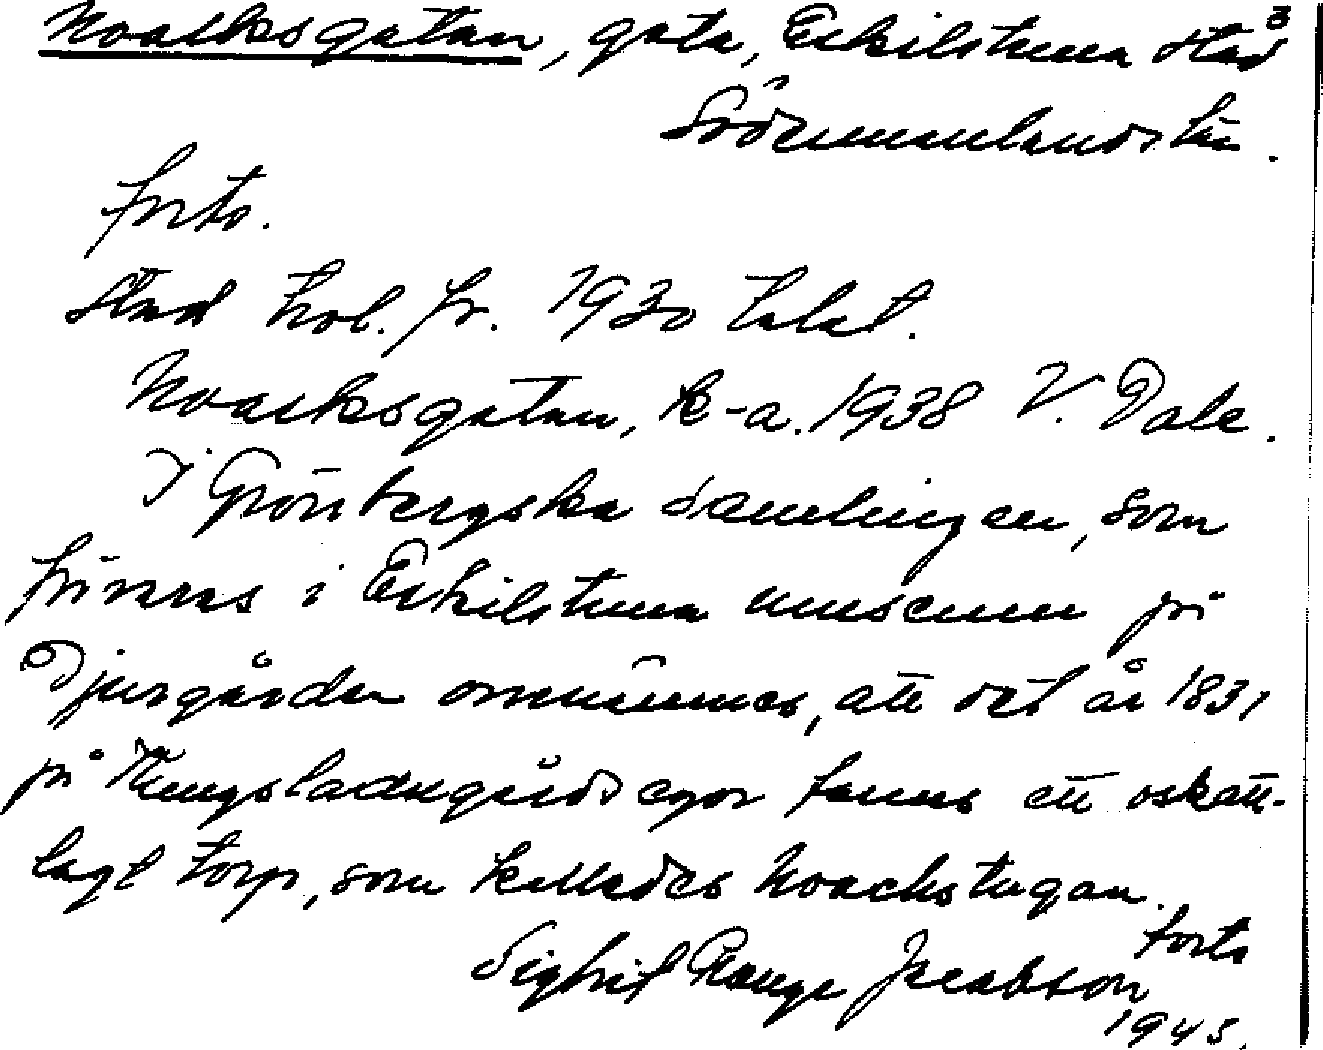 Noacksgatan, gata, Eskilstuna stad 3
Södermanlands län.
forts.
Stad prot. fr. 1930 talet.
Noacksgatan, k-a. 1938 V. Dale.
I Grönbergska samlingen, som
förvaras i Eskilstuna museum på
Djurgården omnämnes, att det år 1831
på Kungsladugårds egor fanns ett oskatt-
lagt torp, som kallades Noachstugan.
forts
Sigfrid Jacobson
1945.